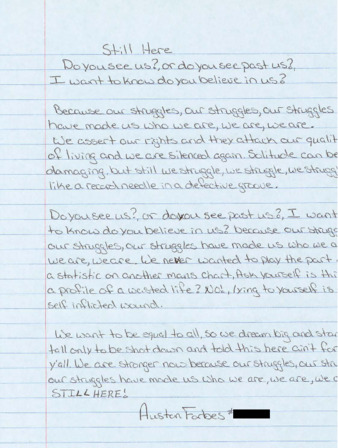 Still Here
Do you see us?, or do you see past us?,
I want to know do you believe in us?
Because our struggles, our struggles, our struggles
have made us who we are, we are, we are.
We assert our rights and they attack our qualit
of living and we are silenced again. Solitude can be
damaging, but still we struggle, we struggle, we strugg
like a record needle in a defective groove.
Do you see us?, or do you see past us?, I want
to know do you believe in us? because our strugg
our struggles, our struggles have made us who we a
we are, we are. We never wanted to play the part
a statistic on another mans chart, Ask yourself is thi
a profile of a wasted life? No!, lying to yourself is
self inflicted wound.
We want to be equal to all, so we dream big and stan
tall only to be shot down and told this here ain't for
y'all. We are stronger now because our struggles, our stru
our struggles have made us who we are, we are, we a
STILL HERE!
Austen Forbes #